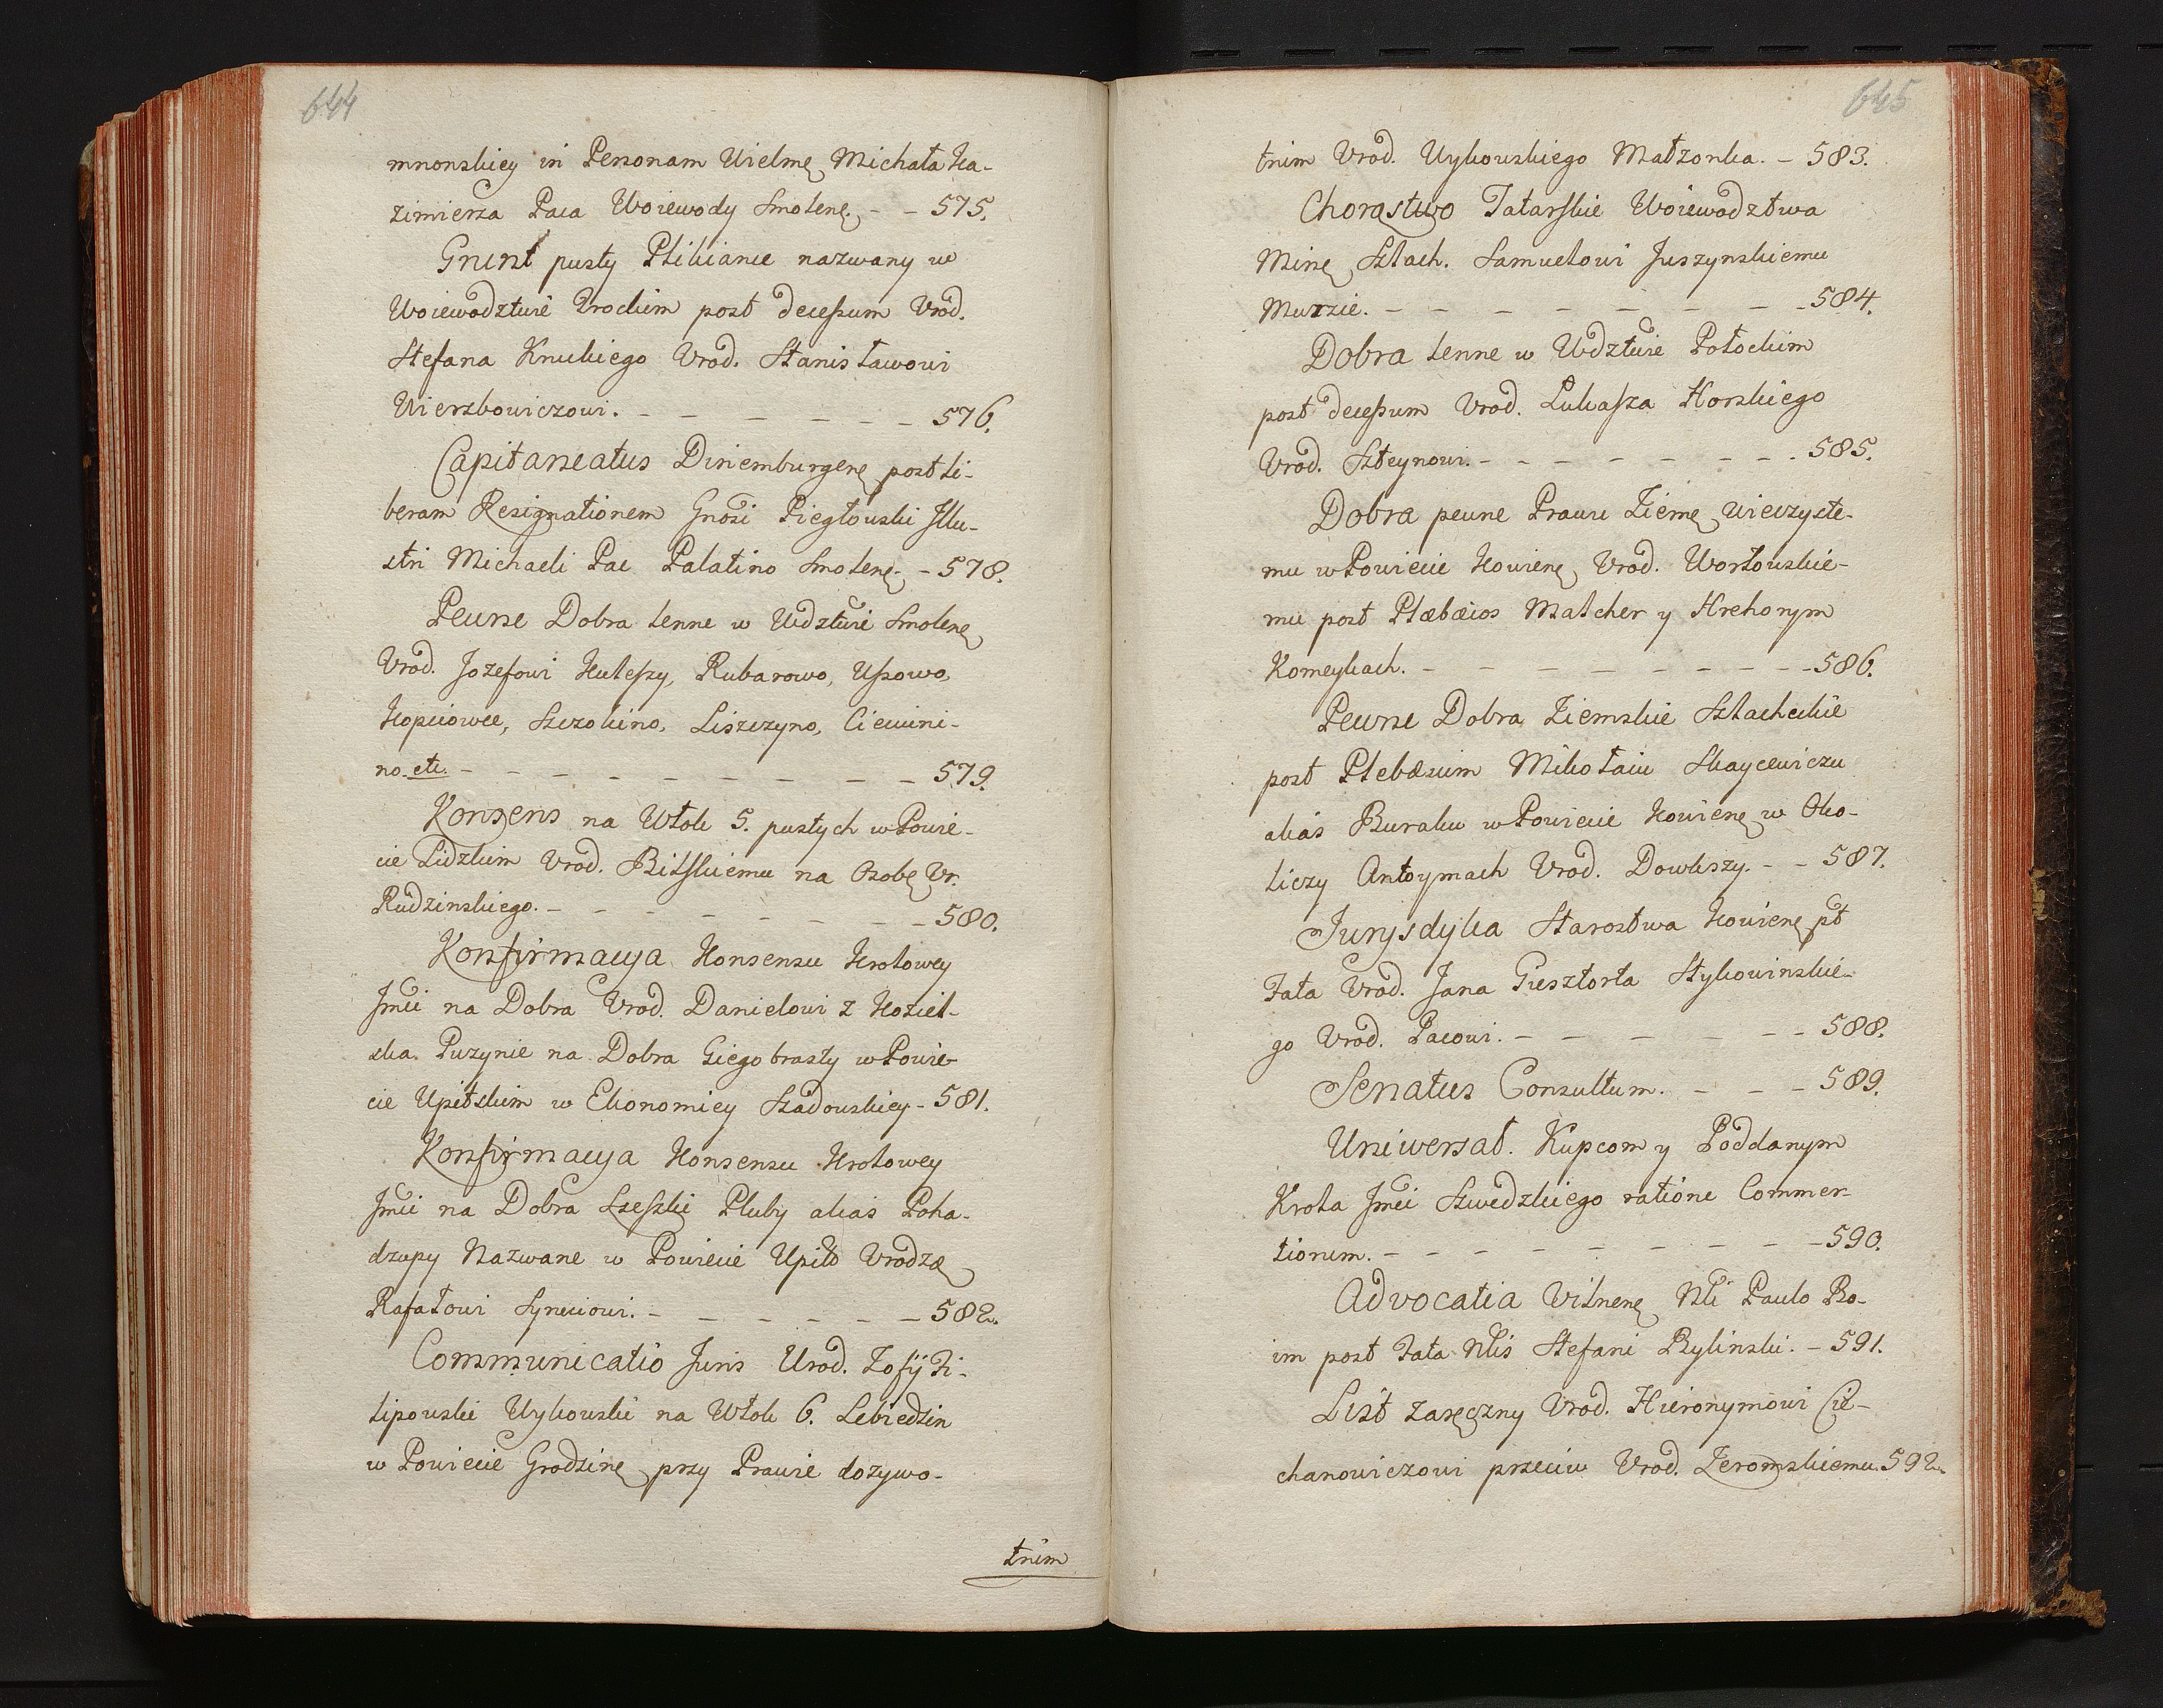 644
mnonskiey in Personam Wielmę Michała Ka-
zimierza Paca Woiewody Smolenę. - - 575.
Grunt pusty Plikianie nazwany w
Woiewodztwie Trockim post decessum Vrod.
Stefana Knukiego Vrod. Stanisławowi
Wierzbowiczowi. - - - - - - 576.
Capitaneatus Dinemburgenę post li-
beram Resignationem Gnosi Piegłowski Illu-
stri Michaeli Pac Palatino Smolenę. - 578.
Pewne Dobra lenne w Wdztwie Smolenę
Vrod. Jozefowi Kuleszy, Rubarowo, Ussowo,
Kopciowce, Szczokino, Liszczyno, Ciewini-
no etc. - - - - - - - - - 579.
Konsens na Włok 5. pustych w Powie-
cie Lidzkim Vrod. Bilskiemu na Osobę Vr.
Rudzinskiego. - - - - - - - - 580.
Konfirmacya Konsensu Krolowey
Jmci na Dobra Vrod. Danielowi z Koziel-
ska Puzynie na Dobra Giegobrasty w Powie-
cie Upitskim w Ekonomiey Szadowskiey - 581.
Konfirmacya Konsensu Krolowey
Jmci na Dobra Szeszki Pluby alias Poha-
dzupy Nazwane w Powiecie Upitt Vrodzę
Rafałowi Synuciowi. - - - - - - 582.
Communicatio Juris Urod. Zofij Fi-
lipowski Wykowski na Włok 6. Lebiedzin
w Powiecie Grodzinę przy Prawie dozywo-
tnim
645
tnim Vrod. Wykowskiego Małzonka. - 583.
Chorąstwo Tatarskie Woiewodztwa
Minę Szlach. Samuelowi Juszynskiemu
Murzie. - - - - - - - - 584.
Dobra lenne w Wdztwie Połockim
post decessum Vrod. Łukasza Horskiego
Vrod. Szteynowi. - - - - - - - - 585.
Dobra pewne Prawu Ziemę wieczyste-
mu w Powiecie Kowienę Vrod. Worłowskie-
mu post Plæbæios Malcher y Hrehorym
Komeykach. - - - - - - - - 586.
Pewne Dobra Ziemskie Szlacheckie
post Plebæium Mikołaiu Skaycewiczu
alias Buraku w Powiecie Kowienę w Oko-
liczy Antoymach Vrod. Dowkszy. - - 587.
Jurysdyka Starostwa Kowienę pt
Fata Vrod. Jana Giesztorta Stykowinskie-
go Vrod. Pacowi. - - - - - - 588.
Senatus Consultum. - - - 589.
Uniwersał. Kupcom y Poddanym
Krola Jmci Szwedzkiego ratione Commer-
tiorum. - - - - - - - - 590.
Advocatia Vilnenę Nli Paulo Bo-
im post Fata Nlis Stefani Rylinski. - 591.
List zaręczny Vrod. Hieronymowi Cie-
chanowiczowi przeciw Vrod. Zeromskiemu. 592.